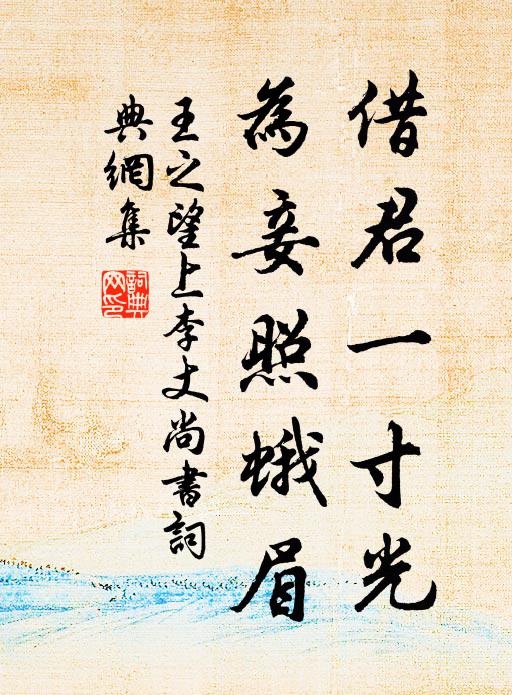 借君一寸光
為妾照蛾眉
王之望上李丈尚書詞
典網集
詞典
网印